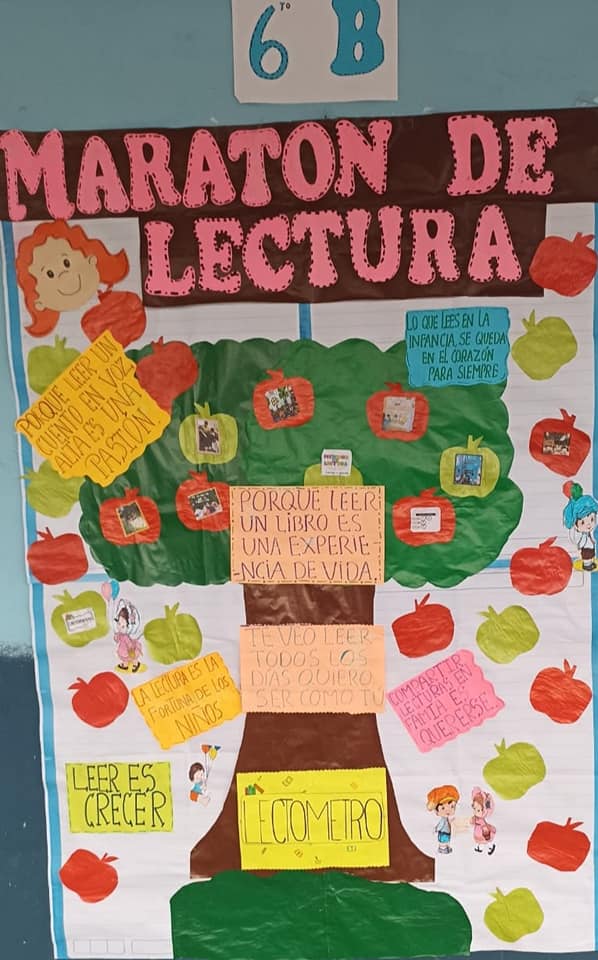 6to B
MARATON DE
LECTURA
LO QUE LEES EN LA
INFANCIA, SE QUEDA
EN EL CORAZÓN
PARA SIEMPRE
PORQUE LEER UN
CUENTO EN VOZ
ALTA ES UNA
PASIÓN
PORQUE LEER
UN LIBRO ES
UNA EXPERIE-
-NCIA DE VIDA
TE VEO LEER
TODOS LOS
DÍAS QUIERO
SER COMO TU
LA LECTURA ES LA
FORTUNA DE LOS
NIÑOS
COMPARTIR
LECTURAS EN
QUERERSE
LEER ES
CRECER
LECTOMETRO